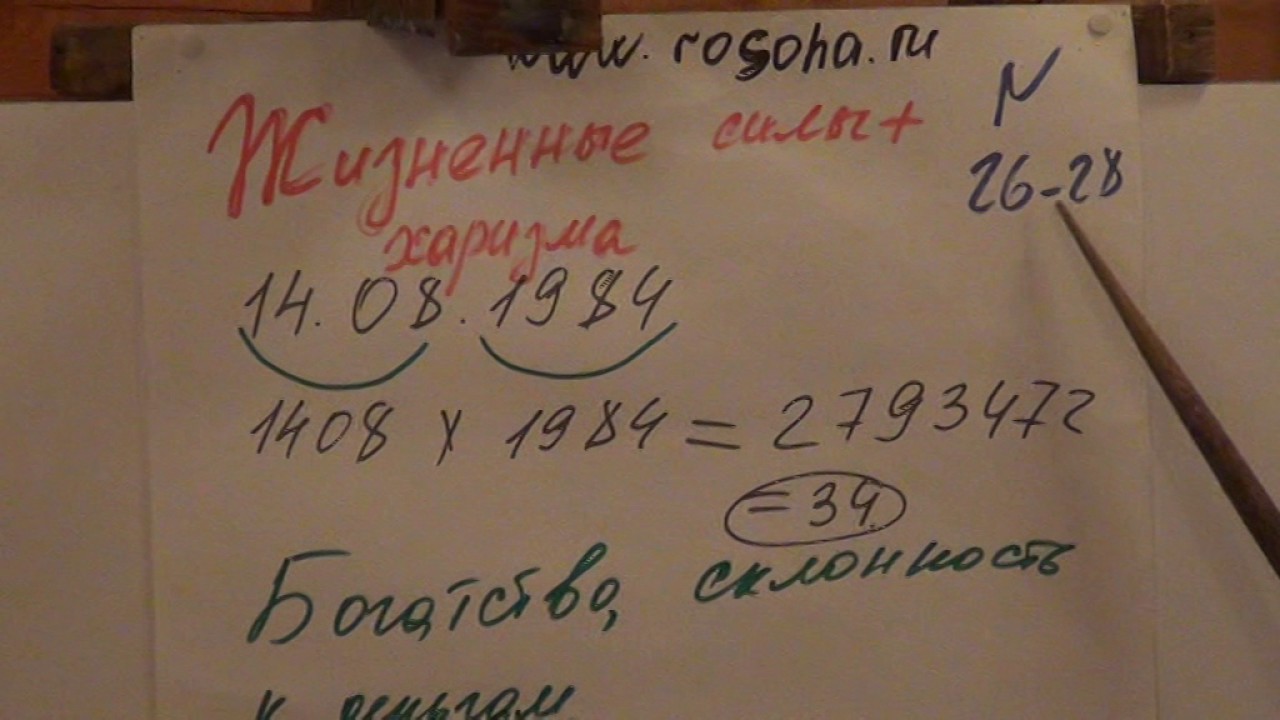 www.rosoha.ru
N
Жизненные силы+
26-28
харизма
14.08.1984
1408 x 1984 = 2793472
= 34
Богатство, склонность
к деньгам